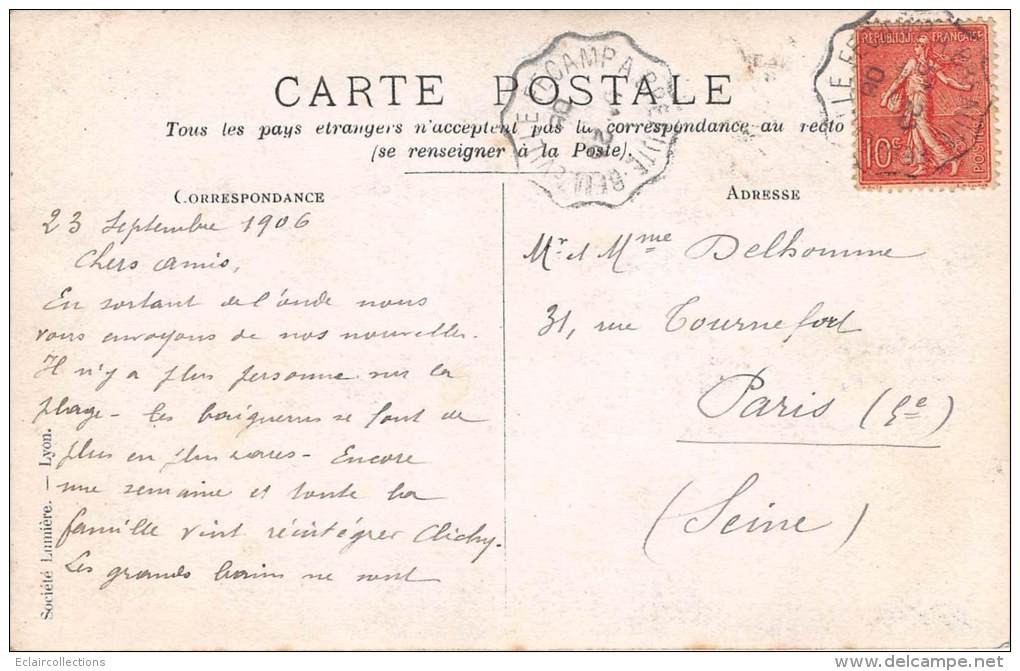 CARTE POSTALE
Tous les pays etrangers n'acceptent pas la correspondance au recto
(se renseigner à la Poste).
CORRESPONDANCE
23 Septembre 1906
Chers amis,
En sortant de l'onde nous
vous envoyons de nos nouvelles.
Il n'y a plus personne sur la
plage - les baigneurs se font de
plus en plus rares - Encore
une semaine et toute la
famille vint réintégrer Clichy.
Les grands bains ne sont
ADRESSE
Mr et Mme Delhomme
31, rue Tournefort
Paris (5e)
(Seine)
REPUBLIQUE FRANÇAISE
10c
POSTES
Société Lumière. — Lyon.
Eclaircollections
delcampe.net